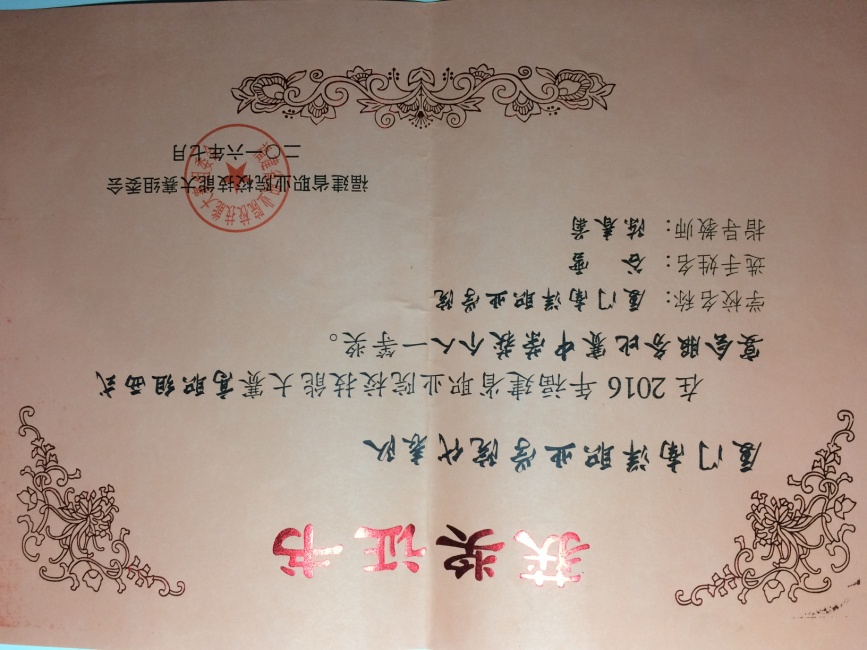 获奖证书
厦门南洋职业学院代表队
在2016年福建省职业院校技能大赛高职组西式
宴会服务比赛中荣获个人一等奖。
学校名称：厦门南洋职业学院
选手姓名：谷 雪
指导教师：陈春菊
福建省职业院校技能大赛组委会
二〇一六年七月